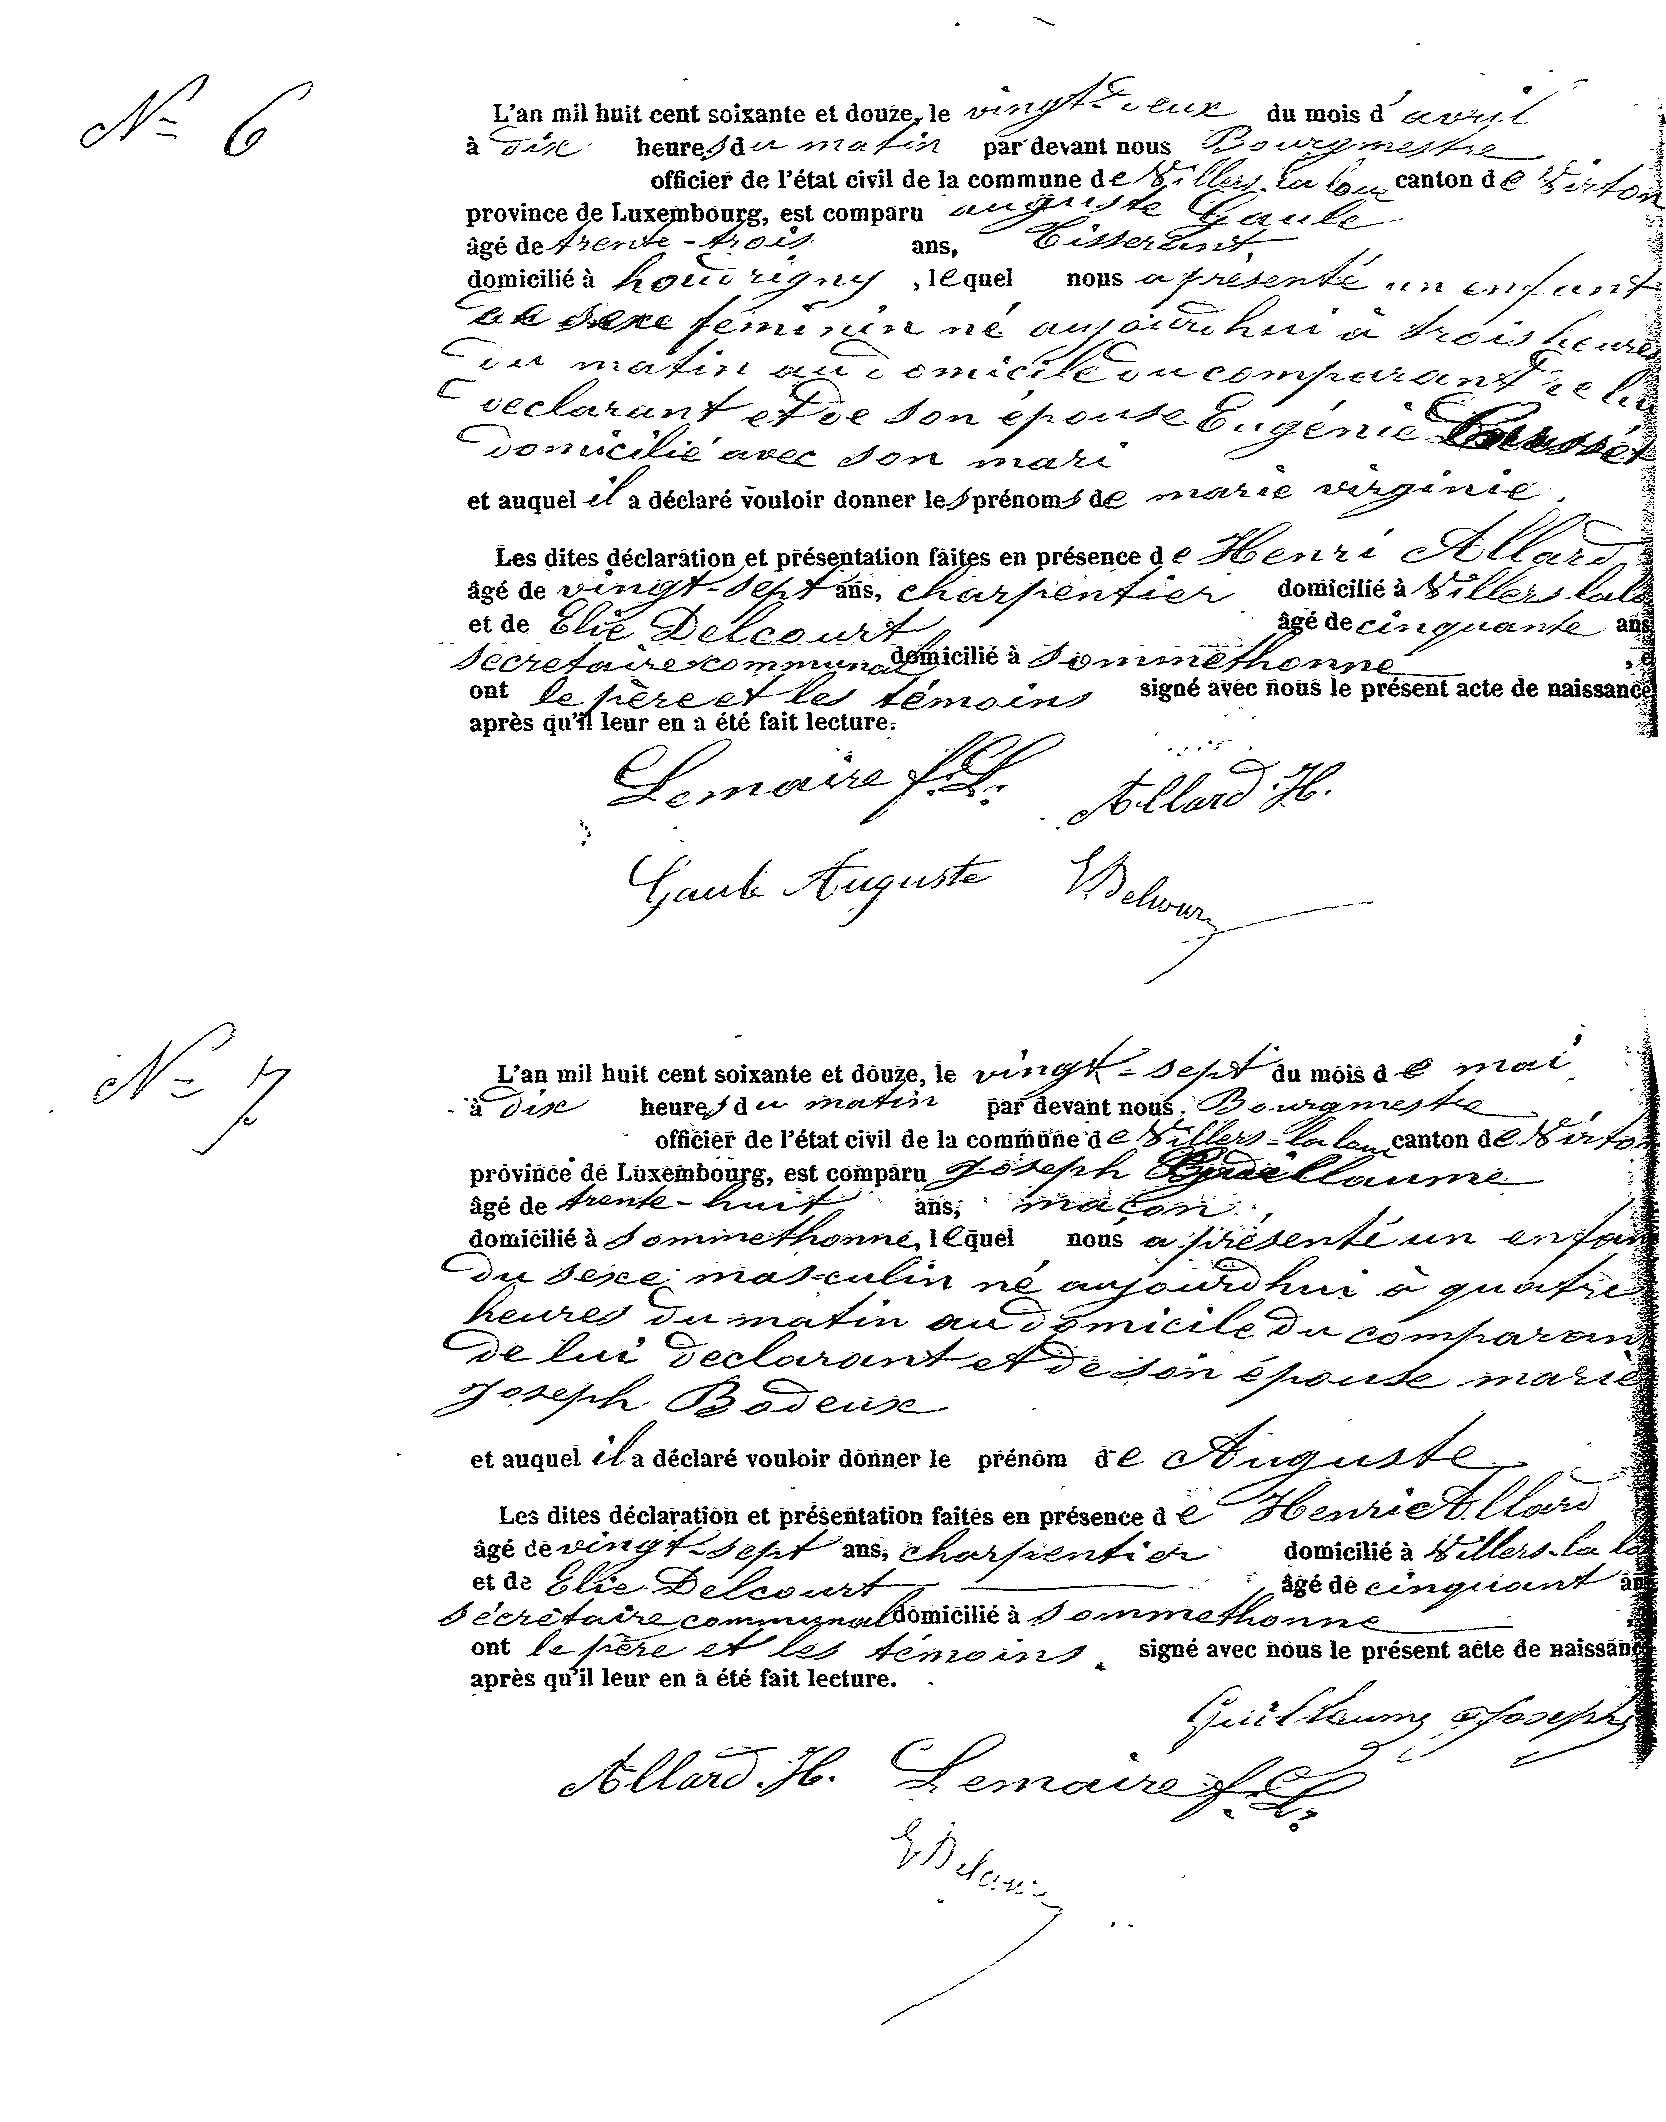 N° 6
L'an mil huit cent soixante et douze, le vingt-deux du mois d'avril
à dix heures du matin par devant nous Bourgmestre
officier de l'état civil de la commune de Villers-la-loue canton de Virton
province de Luxembourg, est comparu auguste Gaule
âgé de trente-trois ans, Tisserant,
domicilié à houdrigny, lequel nous a présenté un enfant
du sexe féminin né aujourdhui à trois heures
du matin au domicile du comparant de lui
declarant et de son épouse Eugénie
domicilié avec son mari
et auquel il a déclaré vouloir donner les prénoms de marie virginie.
Les dites déclaration et présentation faites en présence de Henri Allard
âgé de vingt-sept ans, charpentier domicilié à Villers lalo
et de Elie Delcourt âgé de cinquante ans
secretaire communal domicilié à Sommethonne
ont le père et les témoins signé avec nous le présent acte de naissance
après qu'il leur en a été fait lecture.
Lemaire f. L. Allard H.
Gaule Auguste E Delcour
N° 7
L'an mil huit cent soixante et douze, le vingt-sept du mois de mai
à dix heures du matin par devant nous Bourgmestre
officier de l'état civil de la commune de Villers-la loue canton de Virton
province de Luxembourg, est comparu Joseph Guillaume
âgé de trente-huit ans, maçon,
domicilié à Sommethonne, lequel nous a présenté un enfan
du sexe masculin né aujourdhui à quatre
heures du matin au domicile du comparan
de lui declarant et de son épouse marie
Joseph Bodeux
et auquel il a déclaré vouloir donner le prénom de Auguste
Les dites déclaration et présentation faites en présence de Henri Allard
âgé de vingt-sept ans, charpentier domicilié à Villers-la lo
et de Elie Delcourt âgé de cinquant an
sécrétaire communal domicilié à Sommethonne
ont le père et les témoins signé avec nous le présent acte de naissanc
après qu'il leur en a été fait lecture.
Guillaume Joseph
Allard H. Lemaire f. L.
E Delcour